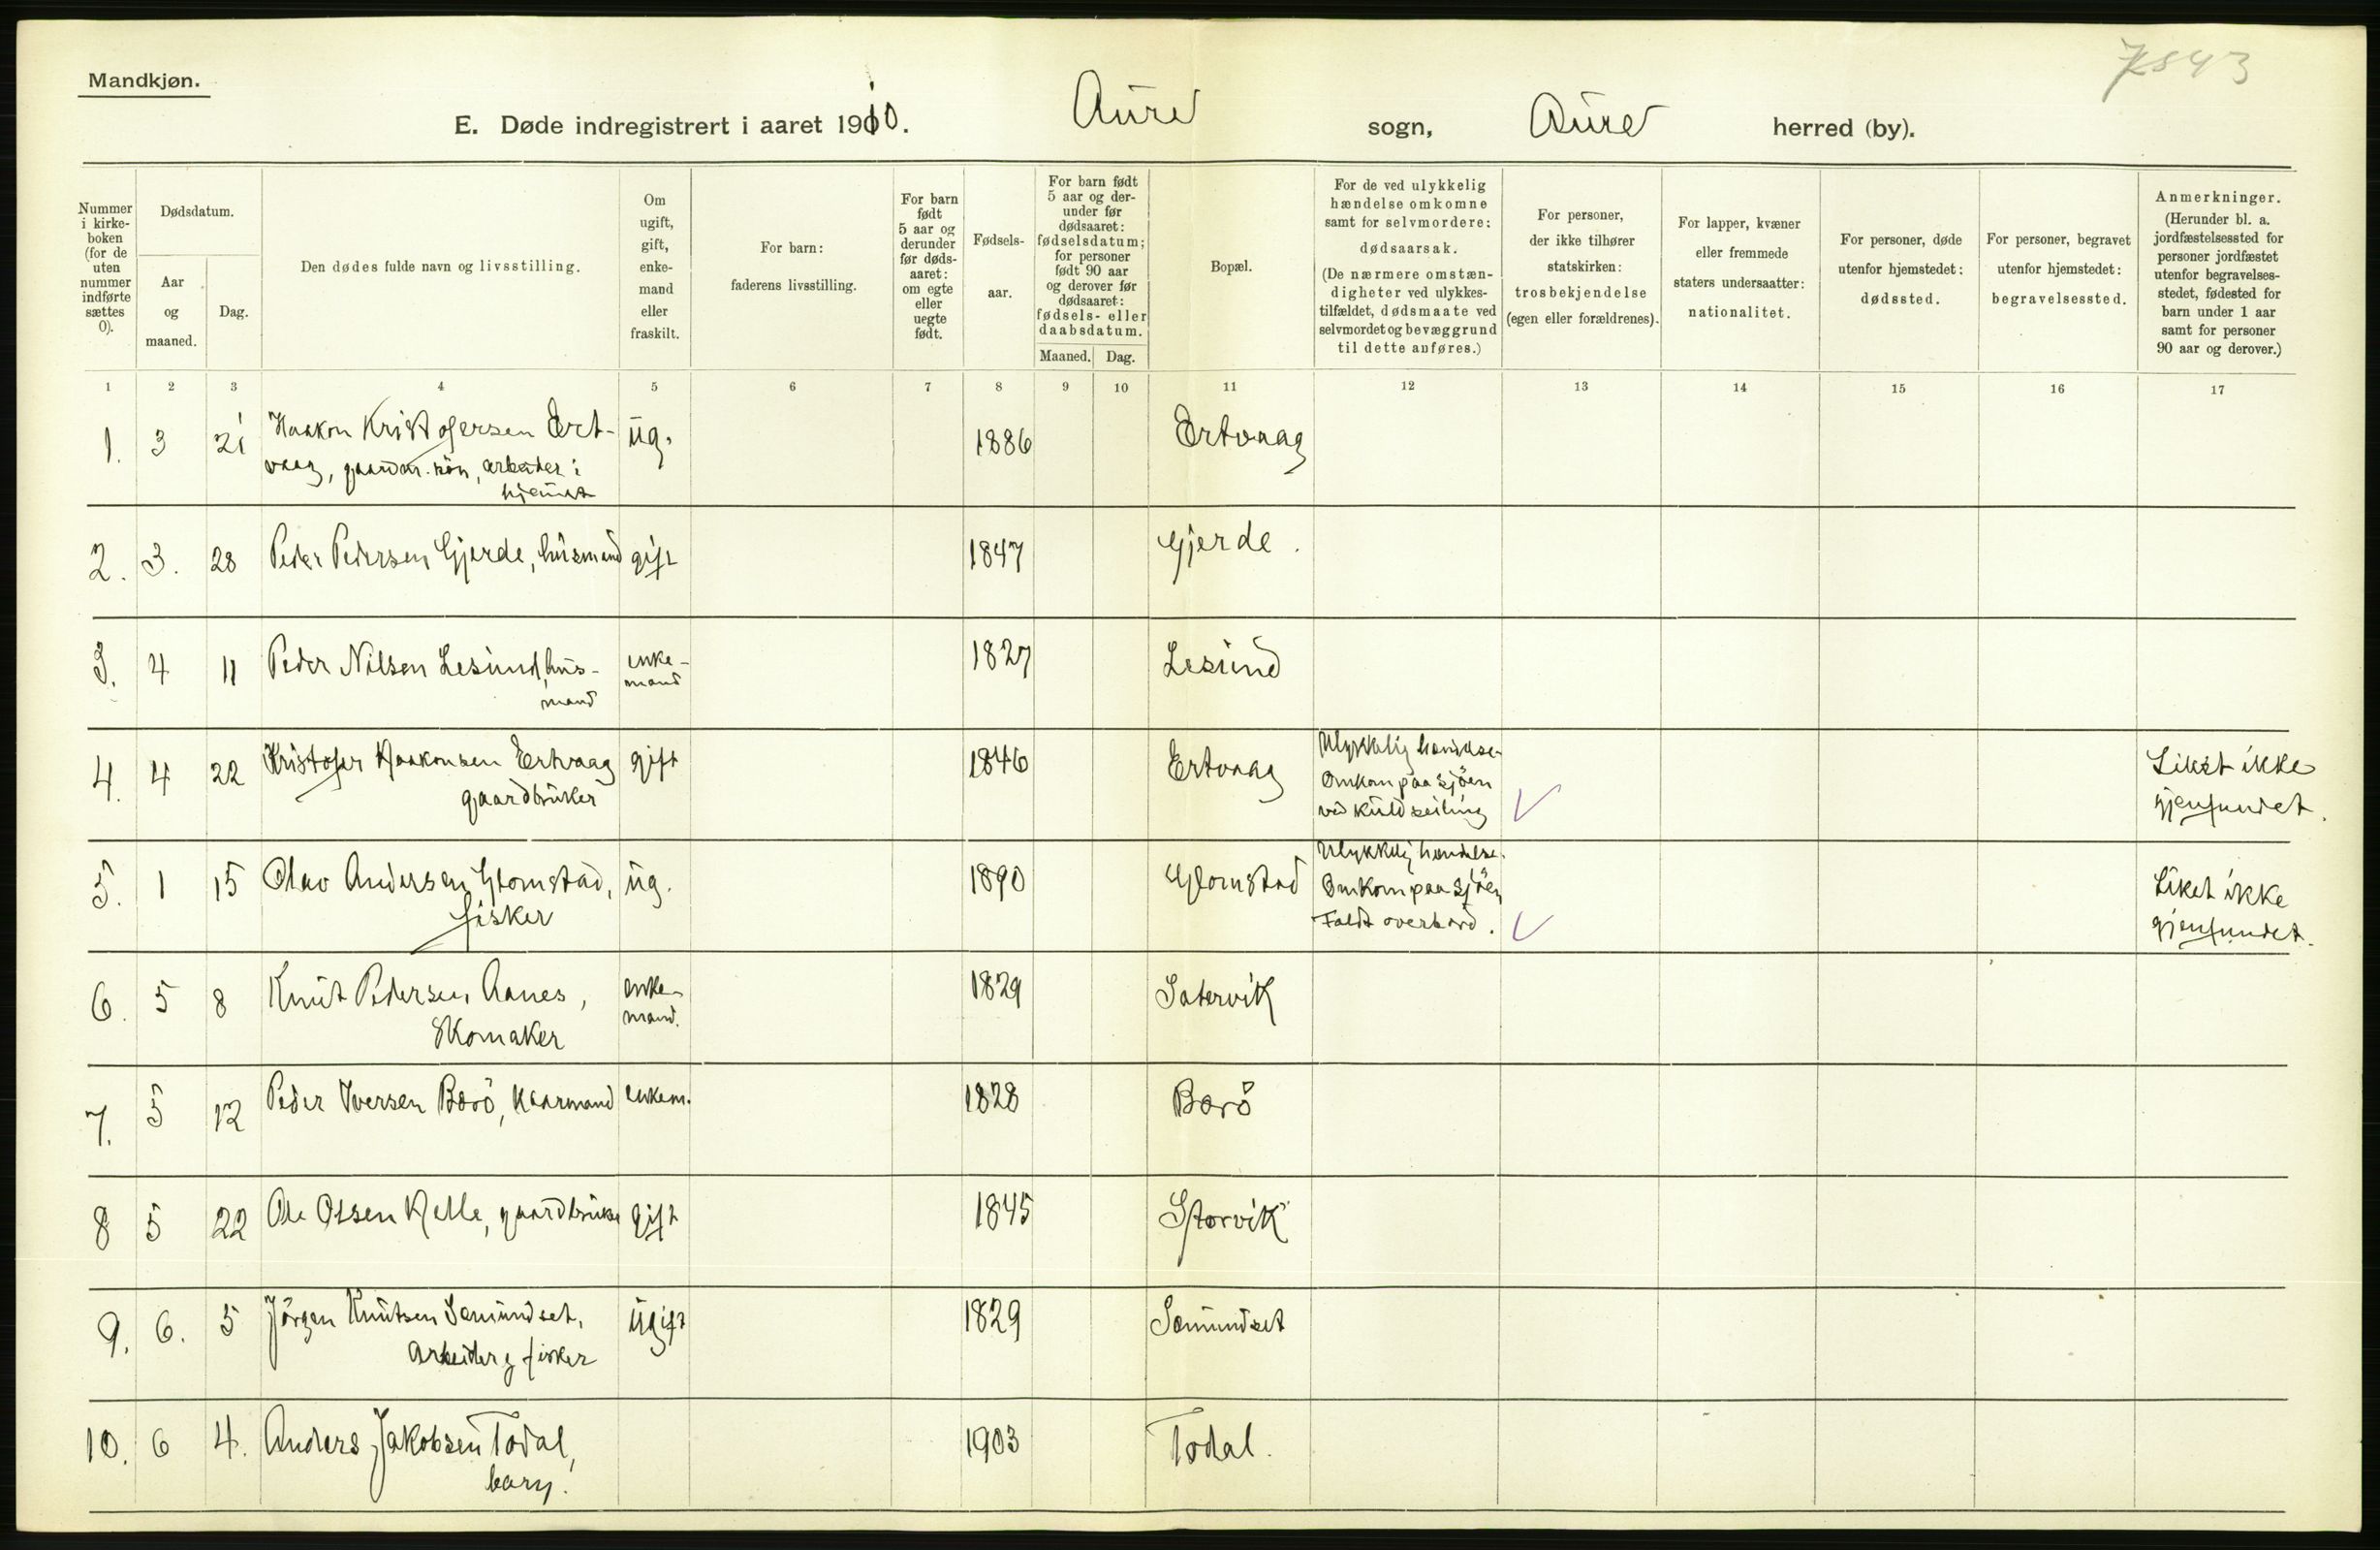 Mandkjøn.
7843
E. Døde indregistrert i aaret 1910. Aure sogn, Aure herred (by).
Nummer i kirke-boken (for de uten nummer indførte sættes 0).
Dødsdatum.
Aar og maaned.
Dag.
Den dødes fulde navn og livsstilling.
Om ugift, gift, enke-mand eller fraskilt.
For barn: faderens livsstilling.
For barn født 5 aar og derunder før døds-aaret: om egte eller uegte født.
Fødsels-aar.
For barn født 5 aar og der-under før dødsaaret: fødselsdatum; for personer født 90 aar og derover før dødsaaret: fødsels- eller daabsdatum.
Maaned. Dag.
Bopæl.
For de ved ulykkelig hændelse omkomne samt for selvmordere: dødsaarsak. (De nærmere omstæn-digheter ved ulykkes-tilfældet, dødsmaate ved selvmordet og bevæggrund til dette anføres.)
For personer, der ikke tilhører statskirken: trosbekjendelse (egen eller forældrenes).
For lapper, kvæner eller fremmede staters undersaatter: nationalitet.
For personer, døde utenfor hjemstedet: dødssted.
For personer, begravet utenfor hjemstedet: begravelsessted.
Anmerkninger. (Herunder bl. a. jordfæstelsessted for personer jordfæstet utenfor begravelses-stedet, fødested for barn under 1 aar samt for personer 90 aar og derover.)
1 2 3 4 5 6 7 8 9 10 11 12 13 14 15 16 17
1. 3 21 Haakon Kristofersen Ert- ug. 1886 Ertvaag
vaag, gaardbr. søn, arbeider i
hjemmet
2. 3. 28 Peder Pedersen Gjerde, husmand gift 1847 Gjerde.
3. 4 11 Peder Nilsen Lesund, hus- enke- 1827 Lesund
mand mand
4. 4 22 Kristofer Haakonsen Ertvaag gift 1846 Ertvaag Ulykkelig hændelse. Liket ikke
gaardbruker Omkom paa sjøen gjenfundet.
ved kuldseiling
5. 1 15 Olav Andersen Glomstad, ug. 1890 Glomstad Ulykkelig hændelse. Liket ikke
fisker Omkom paa sjøen gjenfundet.
Faldt overbord.
6. 5 8 Knut Pedersen Aanes, enke- 1829 Sætervik
Skomaker mand.
7. 5 12 Peder Iversen Barö, kaarmand enkem. 1828 Barö
8 5 22 Ole Olsen Kjelle, gaardbruker gift 1845 Storvik
9. 6. 5 Jörgen Knutsen Sæmundset, Ugift 1829 Sæmundset
Arbeider og fisker
10. 6 4. Anders Jakobsen Todal, 1903 Todal.
barn.